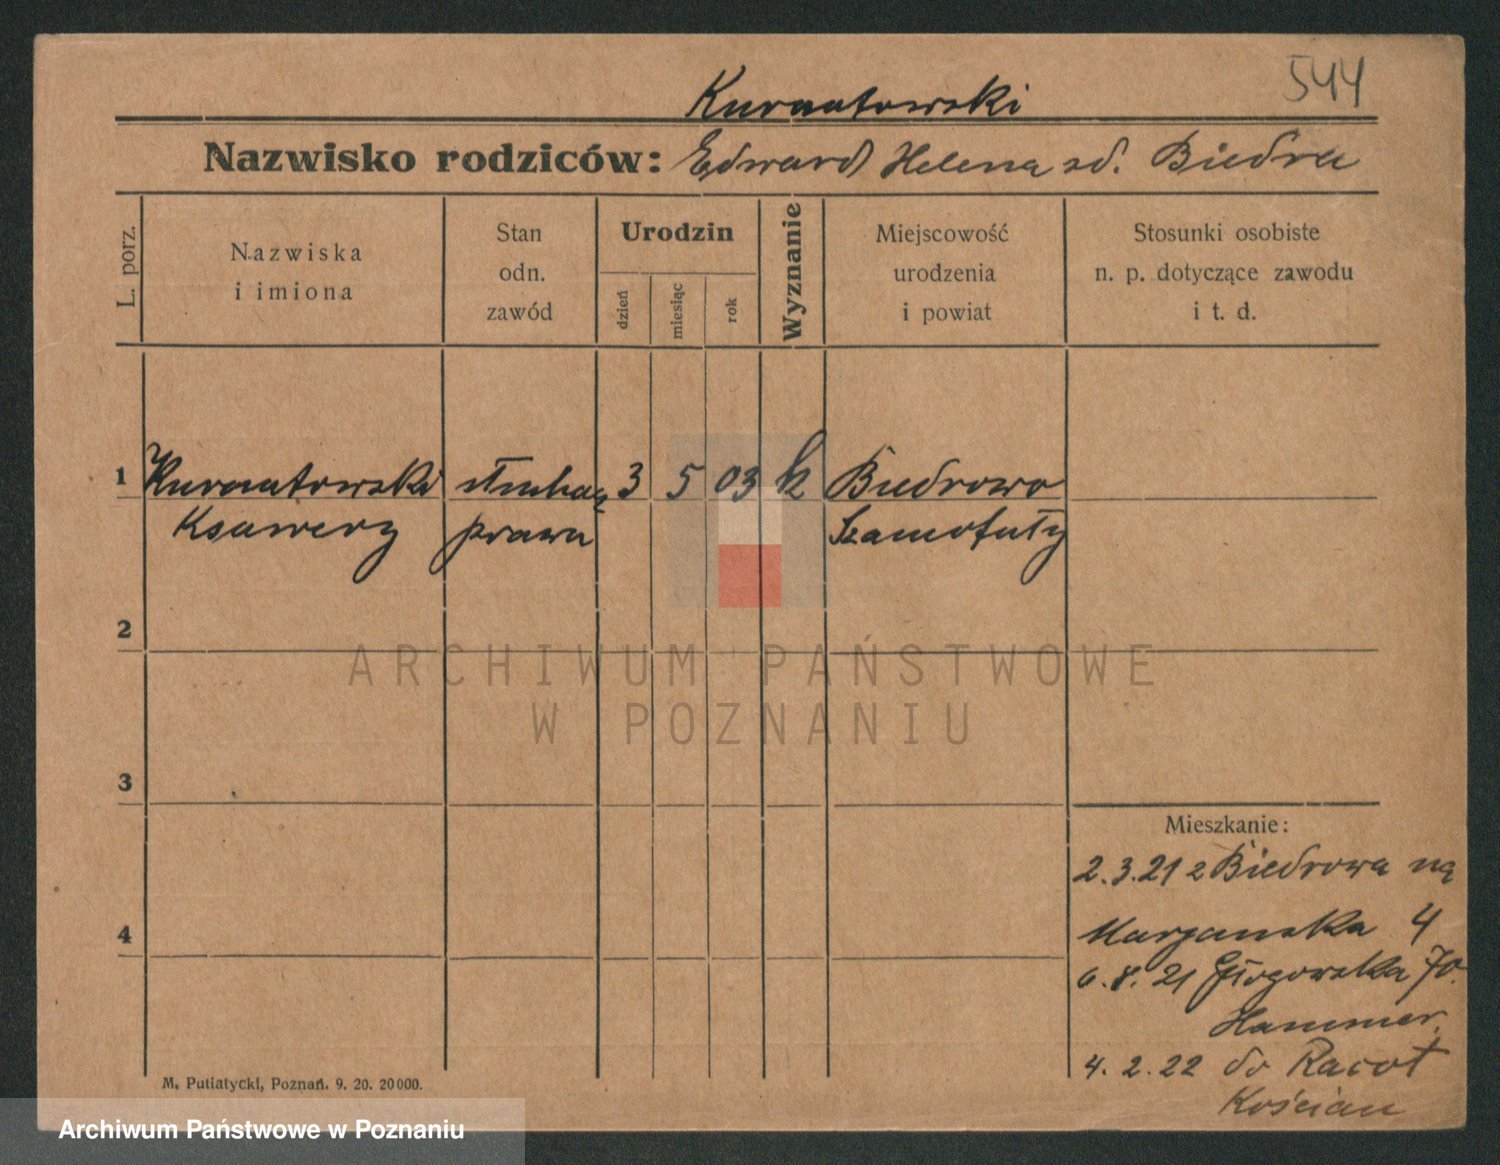 544
Kurnatowski
Nazwisko rodziców: Edward Helena zd. Biedra
L. porz.
Nazwiska
i imiona
Stan
odn.
zawód
Urodzin
dzień
miesiąc
rok
Wyznanie
Miejscowość
urodzenia
i powiat
Stosunki osobiste
n. p. dotyczące zawodu
i t. d.
1 Kurnatowski słuchacz 3 5 03 k Biedrowo
Ksawery prawa Szamotuły
2
ARCHIWUM PAŃSTWOWE
W POZNANIU
3
Mieszkanie:
2.3.21 z Biedrowa na
4
Marjanska 4
6.8.21 Głogowska 70.
Hammer.
4.2.22 do Racot
Kościan
M. Putiatycki, Poznań. 9. 20. 20000.
Archiwum Państwowe w Poznaniu